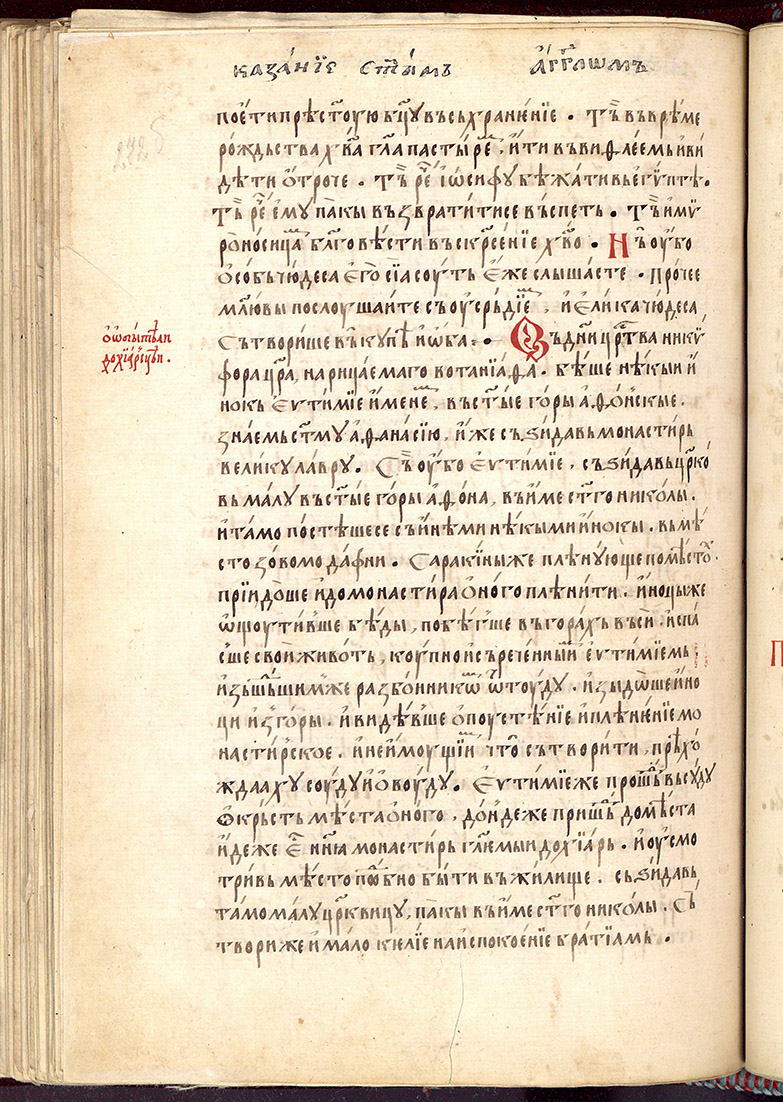 каза́нїе ст҃ы́мь а҆́гг҃лѡмъ
пое́ти прѣст҃ою бц҃у въ съхранѐнїе · тъ̏ въ врѣ́ме
ро́ждьства хв҃а гл҃а пасты́рем, и҆́ти въ виѳле́емь и҆ ви́
дѣти ѻ҆́троче · тъ̏ рече́ і҆ѡ́сифу бѣ́жати вь е҆гѵ́птъ ·
тъ̏ рече́ е҆му̀ па̀кы въ зврати́тисе въспе́ть · тъ̏ и҆ мѵ̈
роно́сицам бл҃го вѣ́сти въскрс҃е́нїе хв҃о · Нъ̏ оу҆́бо
ѻ҆со́бь чю́деса е҆го̀ сїа̀ соу́ть е҆́же слы́шасте · про́чее
млю̀ вы послоу́шаите съ оу҆се́рьдїем, и҆ е҆ли́ка чю́деса
сътвори́ше въ коу́пѣ и҆ ѡ҆́ба · Въ дни цр҃тва никѵ̈
ѻ ѡ҆би́тѣли
дохїа́рсцѣи ·
фора цр҃а, нарица́емаго вотанїа́ѳа · бѣ́ше нѣ́кыи и҆́
нокь е҆ѵтѵ́мїе и҆́менем, въ ст҃ы́е горы̀ а҆ѳо́нскые ·
зна́емь ст҃му а҆ѳана́сїю, и҆́же съзи́давь монасти́рь
вели́кулавру · Съ̏ оу҆́бо е҆ѵти́мїе, съзи́давь цр҃ко́
вь ма́лу въ ст҃ы́е горы̀ а҆ѳо́на, въ и҆́ме ст҃го нико́лы ·
и҆ та́мо по́стѣшесе съ и҆нѣ́ми нѣ́кыми и҆́нокы · вь мѣ́
сто зо́вомо да́фни · Саракі́ны же плѣну́юще по мѣ́стох
прїидо́ше и҆ до монасти́ра ѻ҆́ного плѣни́ти · и҆́ноцы же
ѡ҆щоути́вше бѣ́ды, побѣ́гше въ гора́хь въси̏ · и҆ спа́
сше свои̏ живо́ть, коу́пно и҆ съ рече́нныим е҆ѵти́мїемь ·
и҆зьшьд́шим же разбо́иникѡм ѿтоу́ду · и҆зыдо́ше и҆́но
ци и҆з горы̀ · и҆ ви́дѣвше ѻ҆поустѣ́нїе и҆ плѣне́нїе мо
насти́рское · и҆ не и҆моущїим что̏ сътвори́ти, прѣхо́
ждаахꙋ сѹ́ду и҆ ѻ҆воу́ду · Е҆ѵти́мїе же прошъд́ въсу́ду
ѻ҆́крьсть мѣ́ста ѻ҆́ного, до́ндеже пришъд́ до мѣ́ста
и҆де́же е҆ст нн҃ꙗ монасти́рь гл҃емыи дохїа́рь · и҆ оу҆смо
три́вь мѣ́сто подобно бы́ти въ жи́лище · съзи́давь
та́мо ма́лу цр҃квицу, па̀кы въ и҆́ме ст҃го нико́лы · Сь
твори́ же и҆ ма́ло ке́лїе на и҆спокое́нїе бра́тїамь ·